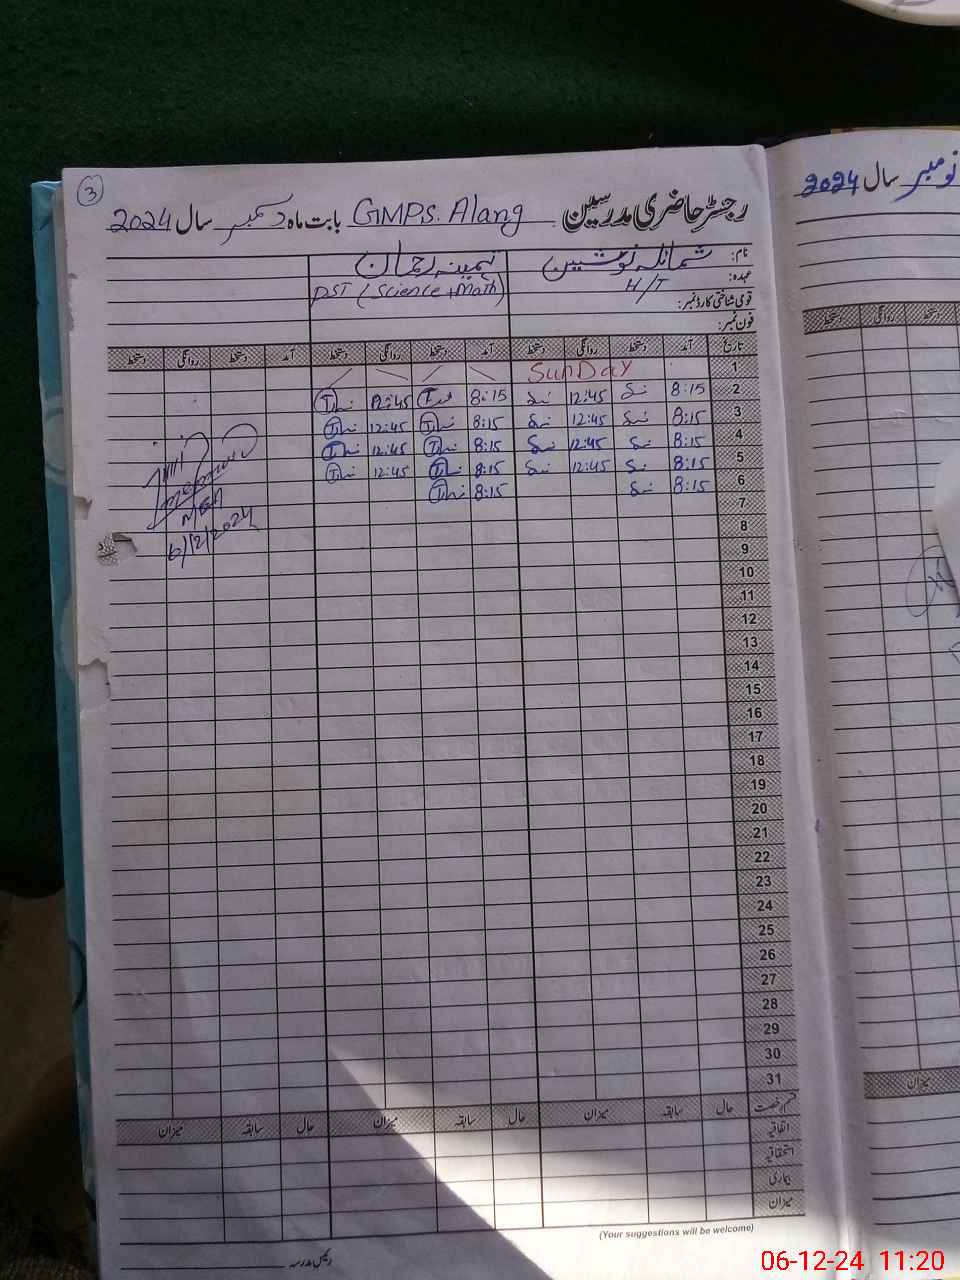 3
رجسٹر حاضری مدرسین GMPs. Alang بابت ماہ دسمبر سال 2024
نام: شمائلہ نوشین ثمینہ رحمان
عہدہ: H/T PST (Science+Math)
قومی شناختی کارڈ نمبر:
فون نمبر:
تاریخ آمد دستخط روانگی دستخط آمد دستخط روانگی دستخط آمد دستخط روانگی دستخط
1 SunDay
2 8:15 12:45 8:15 12:45
3 8:15 12:45 8:15 12:45
4 8:15 12:45 8:15 12:45
5 8:15 12:45 8:15 12:45
6 8:15 8:15
7
8
9
10
11
12
13
14
15
16
17
18
19
20
21
22
23
24
25
26
27
28
29
30
31
MEA
6/12/2024
قسم رخصت حال سابقہ میزان حال سابقہ میزان حال سابقہ میزان
اتفاقیہ
استحقاقیہ
بیماری
میزان
(Your suggestions will be welcome)
رئیس مدرسہ
نومبر سال 2024
دستخط روانگی دستخط
میزان
06-12-24 11:20